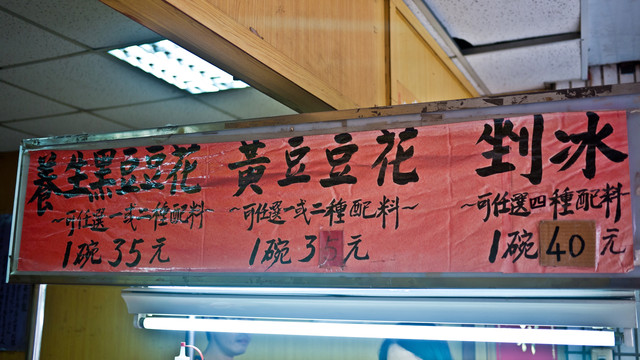 養生黑豆豆花
~可任選一或二種配料~
1碗35元
黃豆豆花
~可任選一或二種配料~
1碗35元
剉冰
~可任選四種配料~
1碗40元